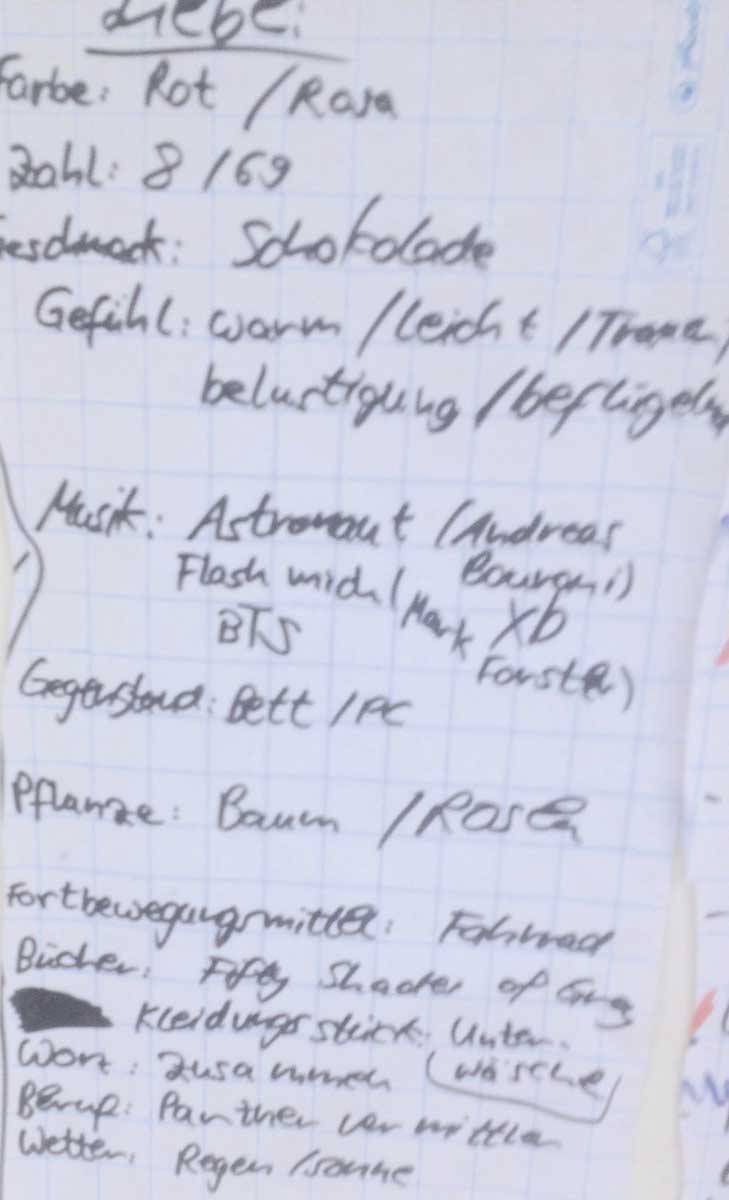 Liebe:
Farbe: Rot / Rosa
Zahl: 8 / 69
Geschmack: Schokolade
Gefühl: warm / leicht /
belustigung / beflügelnd
Musik: Astronaut (Andreas
Bourani)
Flash mich (Mark
Forster)
XD
BTS
Gegenstand: Bett / PC
Pflanze: Baum / Rosen
Fortbewegungsmittel: Fahrrad
Bücher: Fifty Shades of Grey
Kleidungsstück: Unter-
wäsche
Wort: zusammen
Beruf: Partnervermittler
Wetter: Regen / Sonne